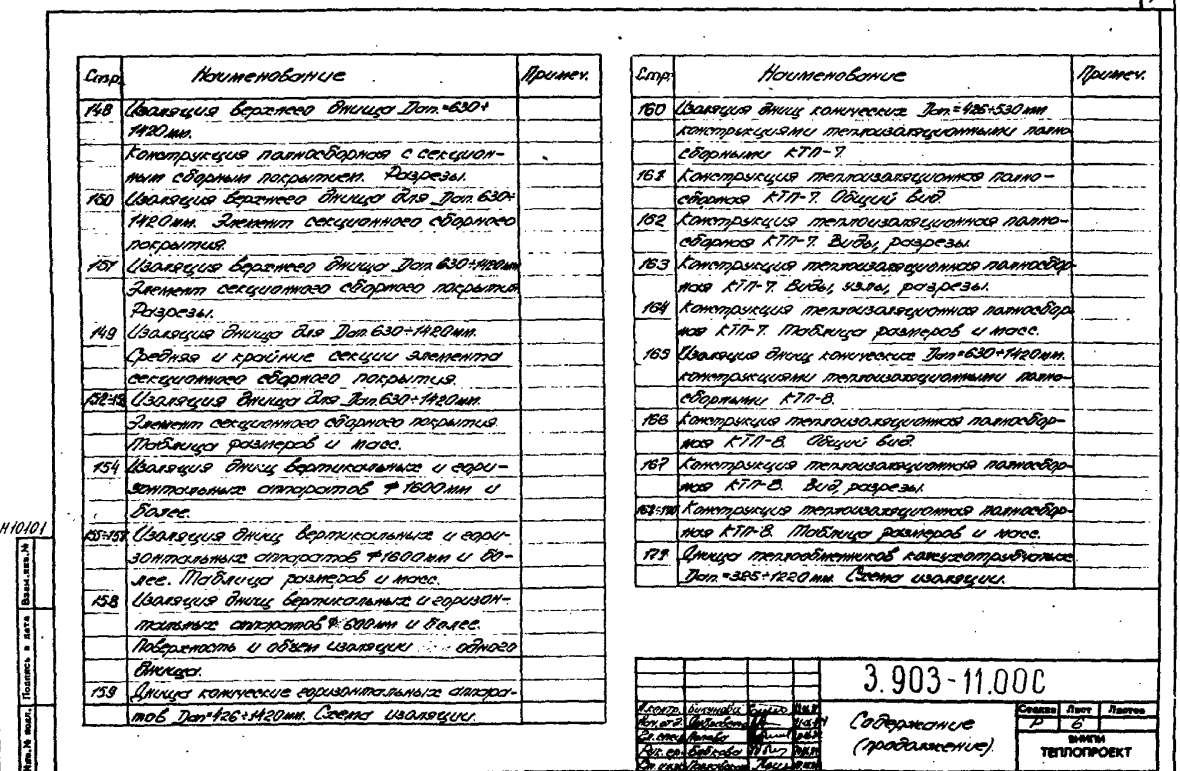 Стр. Наименование Примеч.
148 Изоляция верхнего днища Dап.=630÷
1420мм.
Конструкция полносборная с секцион-
ным сборным покрытием. Разрезы.
150 Изоляция верхнего днища для Dап. 630÷
1420мм. Элемент секционного сборного
покрытия.
151 Изоляция верхнего днища Dап. 630÷1420мм
Элемент секционного сборного покрытия
Разрезы.
149 Изоляция днища для Dап. 630÷1420мм.
Средняя и крайние секции элемента
секционного сборного покрытия.
Изоляция днища для Dап. 630÷1420мм.
Элемент секционного сборного покрытия.
Таблица размеров и масс.
154 Изоляция днищ вертикальных и гори-
зонтальных аппаратов ф 1600мм и
более.
155÷157 Изоляция днищ вертикальных и гори-
зонтальных аппаратов ф1600мм и бо-
лее. Таблица размеров и масс.
158 Изоляция днищ вертикальных и горизон-
тальных аппаратов и более.
Поверхность и объем изоляции одного
днища.
159 Днища конические горизонтальных аппара-
тов Dап=426÷1420мм. Схема изоляции.
Стр. Наименование Примеч.
160 Изоляция днищ конических Dап.=426÷530мм
конструкциями теплоизоляционными полно
сборными КТП-7.
161 Конструкция теплоизоляционная полно-
сборная КТП-7. Общий вид.
162 Конструкция теплоизоляционная полно-
сборная КТП-7. Виды, разрезы.
163 Конструкция теплоизоляционная полносбор-
ная КТП-7. Виды, узлы, разрезы.
164 Конструкция теплоизоляционная полносбор-
ная КТП-7. Таблица размеров и масс.
165 Изоляция днищ конических Dап=630÷1420мм.
конструкциями теплоизоляционными полно-
сборными КТП-8.
166 Конструкция теплоизоляционная полносбор-
ная КТП-8. Общий вид.
167 Конструкция теплоизоляционная полносбор-
ная КТП-8. Вид, разрезы.
168÷170 Конструкция теплоизоляционная полносбор-
ная КТП-8. Таблица размеров и масс.
171 Днища теплообменников кожухотрубчатых
Dап.=325÷1220мм. Схема изоляции.
Н10101
Взам.инв.№
Подпись и дата
Инв.№ подл.
3.903-11.00С
Содержание
(продолжение)
Стадия Лист Листов
Р 6
ВНИПИ
ТЕПЛОПРОЕКТ